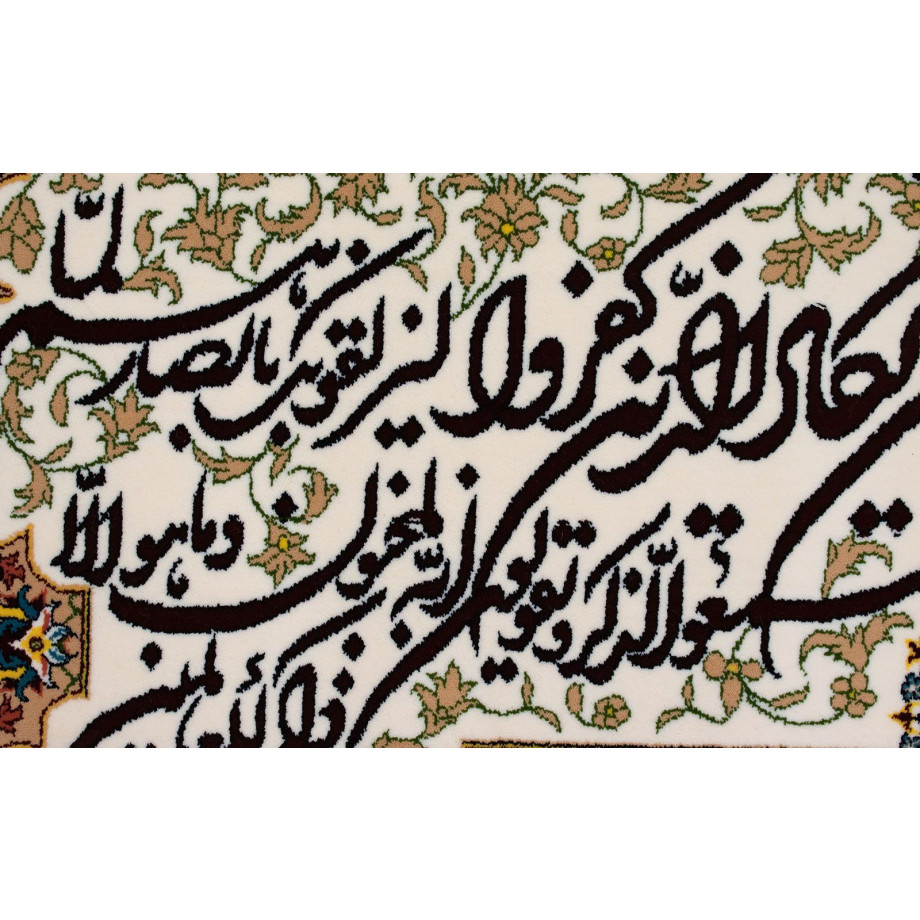 یکاد الذین کفروا لیزلقونک بابصارهم لمّا
سمعوا الذّکر و یقولون انّه لمجنون و ما هو الّا
ذکر للعالمین